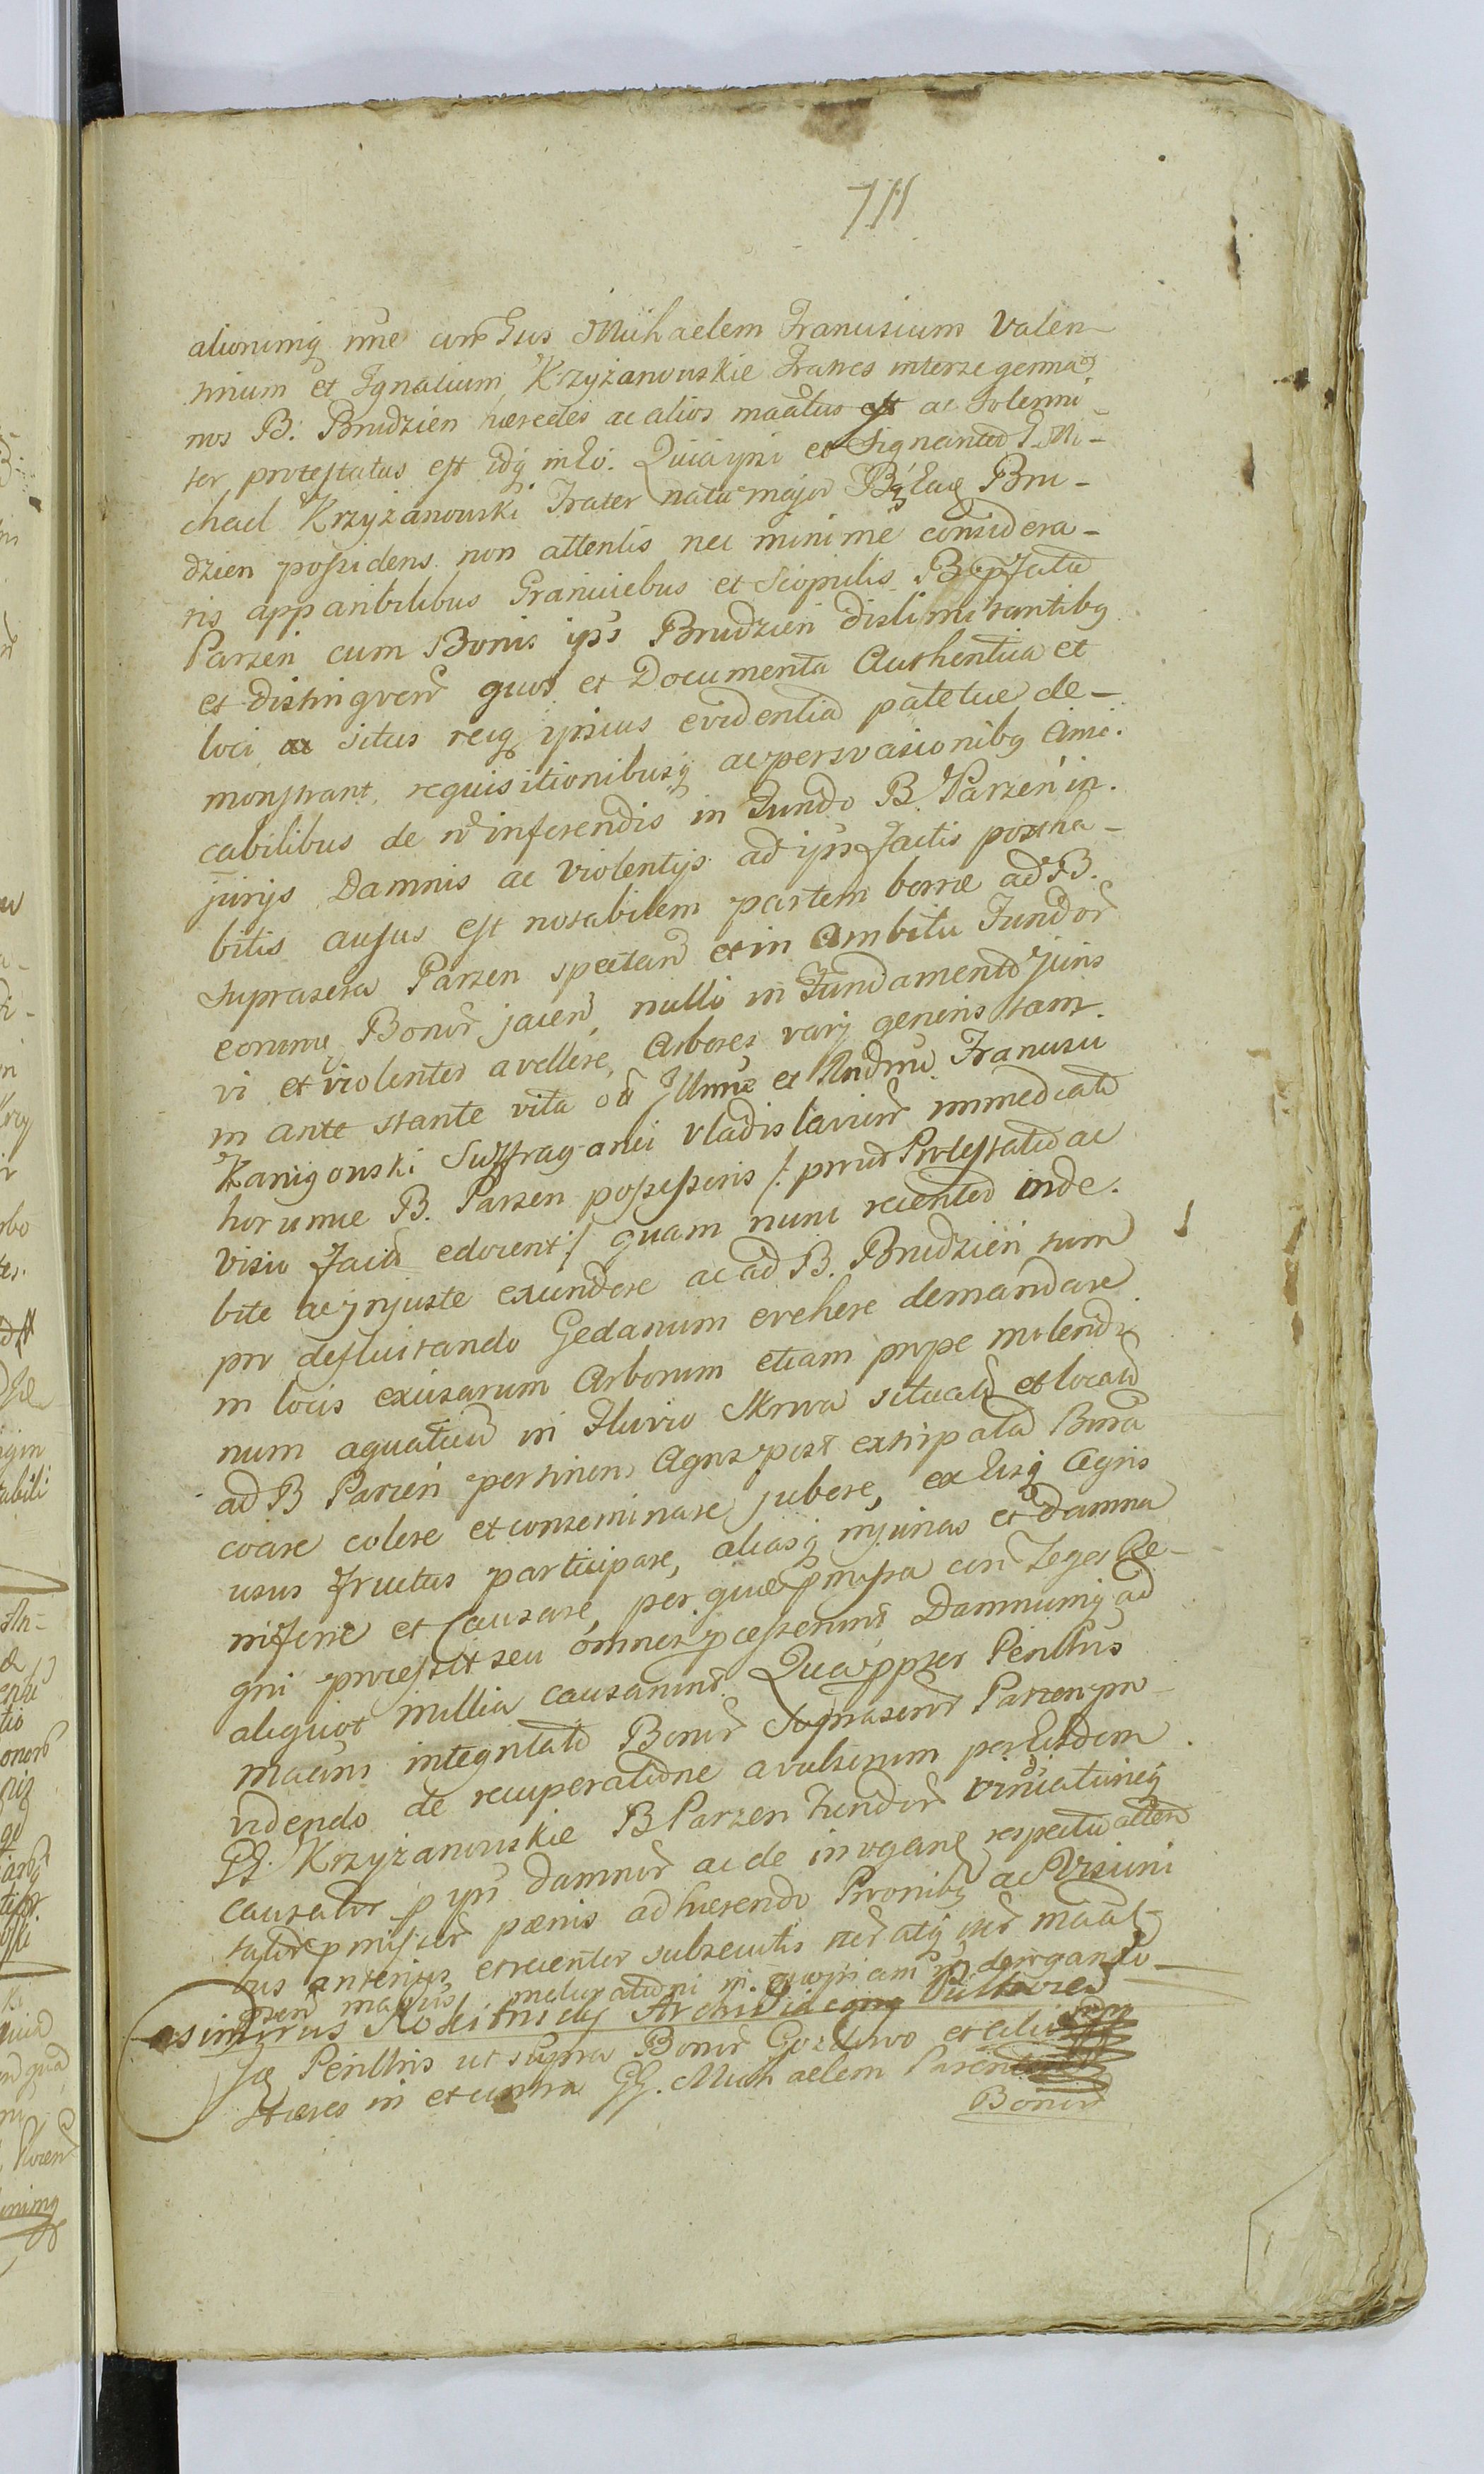 711
aliorumq nne cum Gsos Michaelem Franciscum Valen-
tinum et Ignatium Krzyżanowskie Fratres inter se germa-
nos B. Brudzien hæredes ac alios maatus est ac Solenni-
ter protestatus est idq in Eo. Quia ipsi et Signanter G. Mi-
chael Krzyżanowski Frater natu major Brudzien
dzien possidens non attentis nec minime considera-
tis apparibilibus Graniciebus et Scopulis B. pfata
Parzen cum Bonis ipis Brudzien dislimitantibq
et distingven quos et Documenta Authentica et
loci ac situs reiq ipsius evidentia patetue de-
monstrant, requisitionibusq ac persvasionibq Ami-
cabilibus de n inferendis in Fundo B. Parzen in-
jurijs Damnis ac violentijs ad ips factis postha-
bitis ausus est notabilem partem borræ ad B.
suprascra Parzen spectan et in Ambitu Fundor
eorumq Bonor jacen, nullo in Fundamento Juris
vi et violenter avellere, Arbores varij generis tam
in ante stante vita oli Illmi et Rndmi Francisci
Kanigowski Suffraganei Vladislavien immediati
horumue B. Parzen possessoris /: prout Protestatio ac
visio facta edocent :/ quam nunc recenter inde-
bite ac injuste excindere ac ad B. Brudzien tum
pro defluitando Gedanum evehere demandare
in locis excisarum Arborum etiam prope molendi-
num aquaticum in Fluvio Skrwa situatum et locatum
ad B Parzen pertinens Agros post extirpatam Borra
coare colere et conseminare jubere, ex Eisq Agris
usus fructus participare, aliasq injurias et Damna
inferre et Causare, per quæ præmissa con Leges Re-
gni processit seu omnes processerunt Damnumq ad
aliquot millia causarunt. Quapropter Penlbus
maams integritati Bonor suprascror Parzen pro-
videndo de recuperatione avulsorum per Eosdem
GG. Krzyżanowskie B Parzen Fundor
causator p ips Damnor ac de irrogan respectu atten
tator pmissor pænis adhærendo Prconibq ac Visioni
ius anterius et recenter subsecutis iter atq iter maat
salva melioratione
Casimirus Rokitnicki Archidiaconus Pultovien
Penlbris ut supra Bonor Gozdowo et alior
Hæres in et contra GG. Michaelem Parentem
Bonor